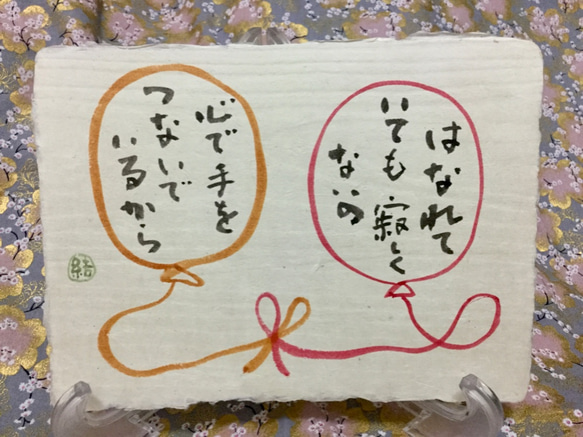 はなれて
いても寂しく
ないの
心で手を
つないで
いるから
結